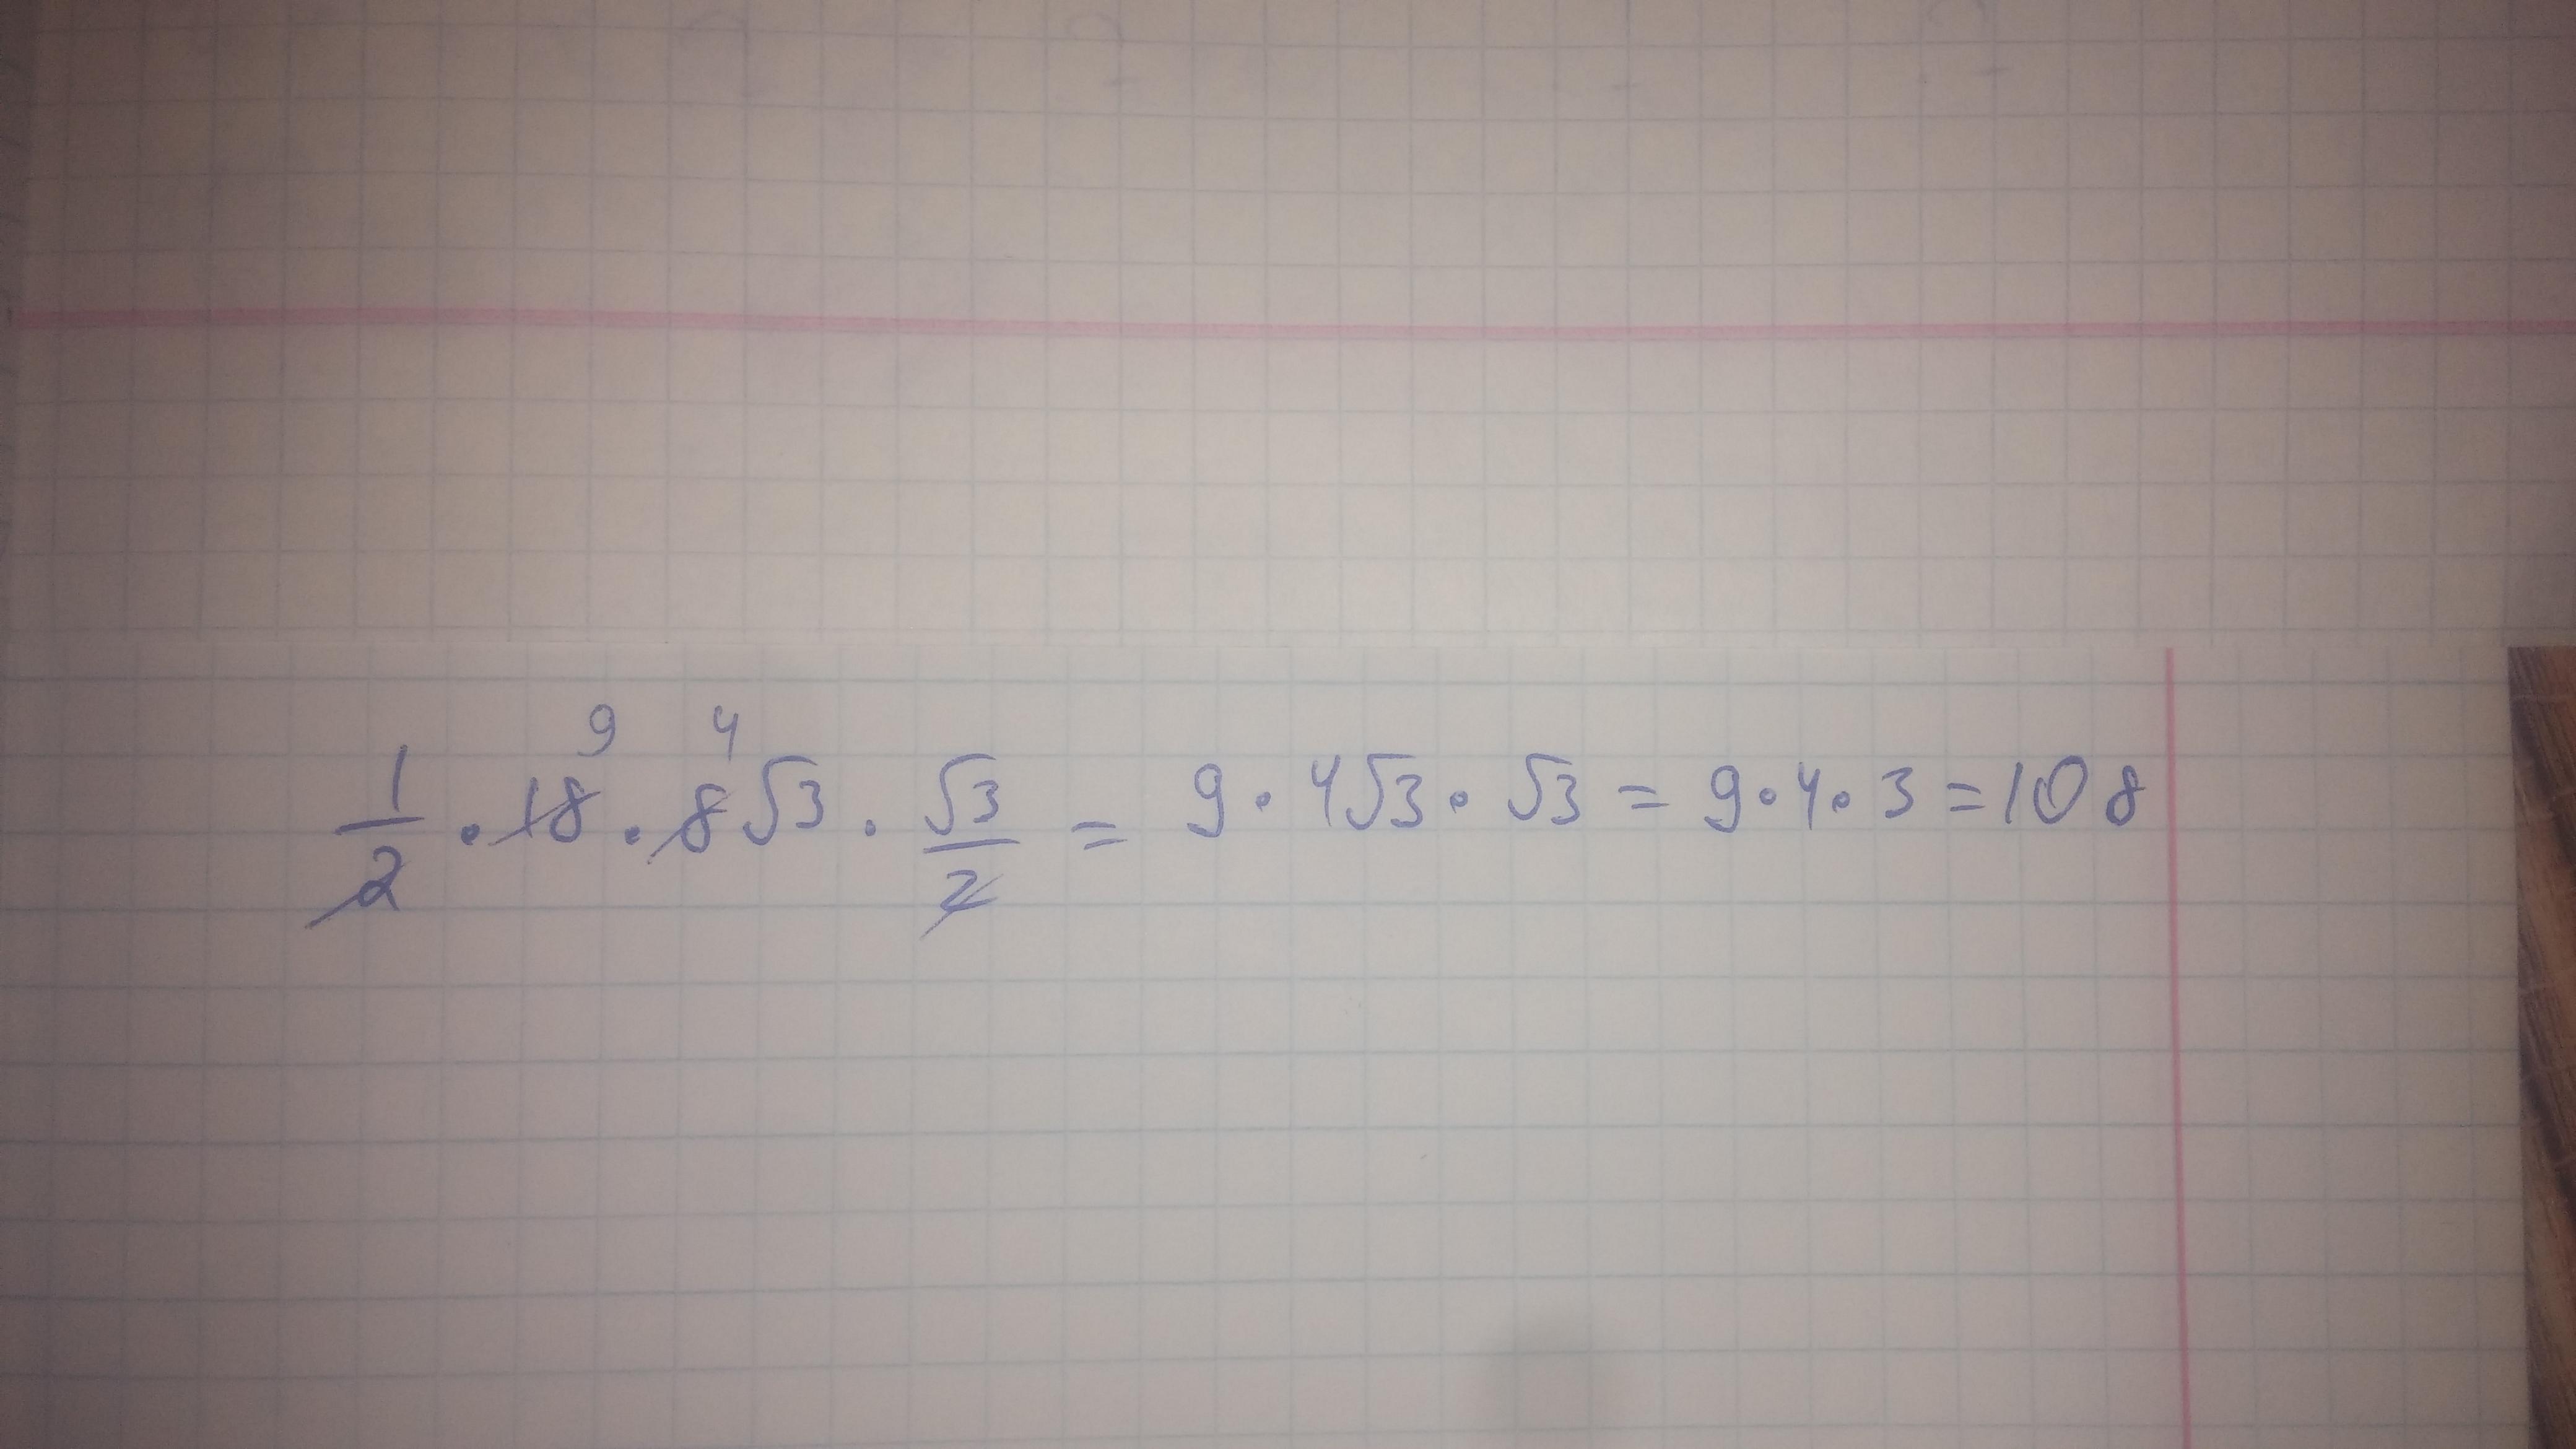 1/2 · 18 9 · 8 4 √3 · √3/2 = 9 · 4√3 · √3 = 9 · 4 · 3 = 108